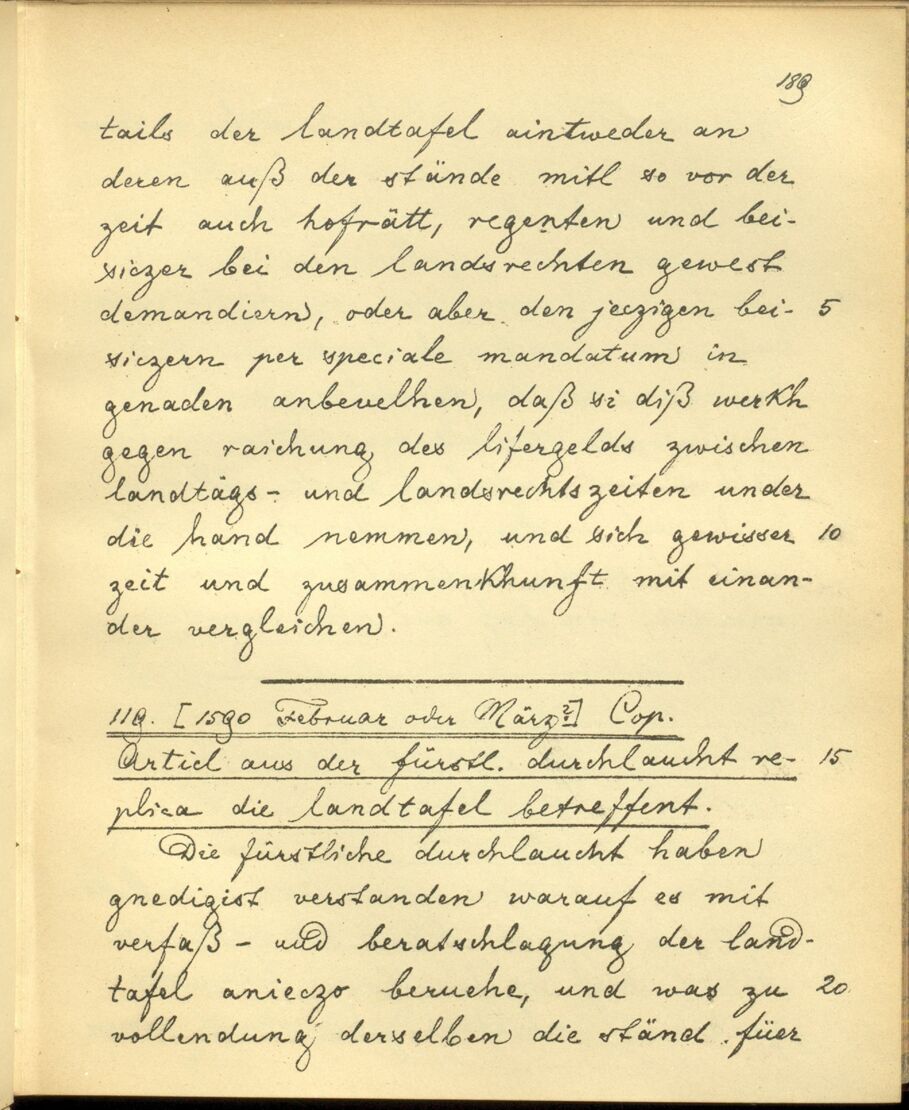 189
tails der landtafel aintweder an
deren auß der stände mitl so vor der
zeit auch hofrätt, regenten und bei-
siczer bei den landsrechten gewest
demandiern, oder aber den jeczigen bei- 5
siczern per speciale mandatum in
genaden anbevelhen, daß si diß werkh
gegen raichung des lifergelds zwischen
landtägs- und landsrechtszeiten under
die hand nemmen, und sich gewisser 10
zeit und zusammenkhunft mit einan-
der vergleichen.
119. [1590 Februar oder März?] Cop.
Articl aus der fürstl. durchlaucht re- 15
plica die landtafel betreffent.
Die fürstliche durchlaucht haben
gnedigist verstanden warauf es mit
verfaß- und beratschlagung der land-
tafel anieczo beruehe, und was zu 20
vollendung derselben die ständ füer